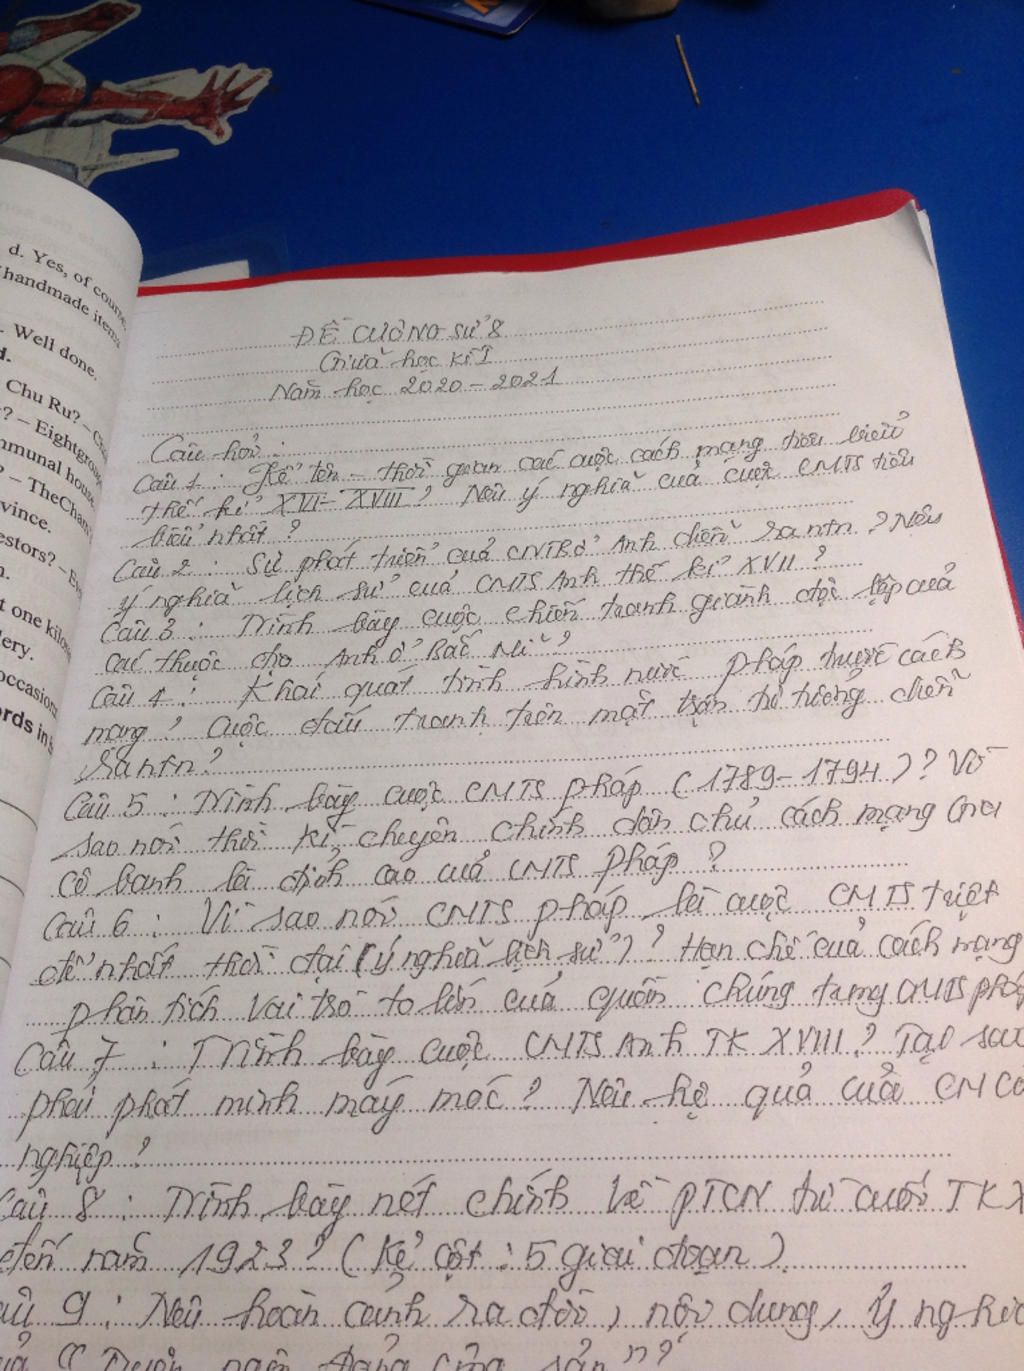 d. Yes, of course,
handmade items
. Well done.
d.
Chu Ru? –
? – Eightgroup
mmunal house
? – TheCham
vince.
estors? –
n.
t one kilo
lery.
occasion
ords in
ĐỀ CƯƠNG SỬ 8
Giữa học kì I
Năm học 2020 – 2021
Câu hỏi :
Câu 1 : Kể tên – thời gian các cuộc cách mạng tiêu biểu
thế kỉ XVI – XVIII ? Nêu ý nghĩa của cuộc CMTS tiêu
biểu nhất ?
Câu 2 : Sự phát triển của CNTB ở Anh diễn ra ntn ? Nêu
ý nghĩa lịch sử của CMTS Anh thế kỉ XVII ?
Câu 3 : Trình bày cuộc chiến tranh giành độc lập của
các thuộc địa Anh ở Bắc Mĩ ?
Câu 4 : Khái quát tình hình nước Pháp trước cách
mạng ? Cuộc đấu tranh trên mặt trận tư tưởng diễn
ra ntn ?
Câu 5 : Trình bày cuộc CMTS Pháp ( 1789 – 1794 ) ? Vì
sao nói thời kì chuyên chính dân chủ cách mạng Gia
cô banh là đỉnh cao của CMTS Pháp ?
Câu 6 : Vì sao nói CMTS Pháp là cuộc CMTS triệt
để nhất thời đại (ý nghĩa lịch sử) ? Hạn chế của cách mạng
phân tích vai trò to lớn của quần chúng trong CMTS Pháp
Câu 7 : Trình bày cuộc CMTS Anh TK XVIII ? Tại sao
phải phát minh máy móc ? Nêu hệ quả của CM Cô
nghiệp ?
Câu 8 : Trình bày nét chính về PTCN từ cuối TK X
đến năm 1923 ? ( Kẻ cột : 5 giai đoạn ).
âu 9 : Nêu hoàn cảnh ra đời, nội dung, ý nghĩa
của " Tuyên ngôn Đảng cộng sản " ?